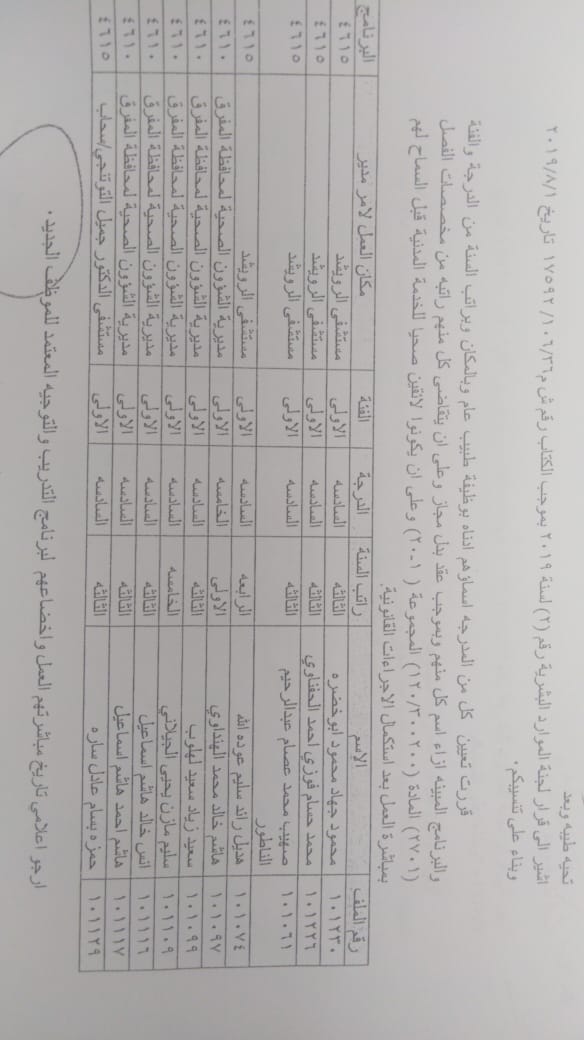 تحيه طيبه وبعد
اشير الى قرار لجنة الموارد البشرية رقم (٢) لسنة ٢٠١٩ بموجب الكتاب رقم ش م/١٠٦/٣٦/١٧٥٩٢ تاريخ ٢٠١٩/٨/١
وبناء على تنسيبكم.
قررت تعيين كل من المدرجه اسماؤهم ادناه بوظيفة طبيب عام وبالمكان وبراتب السنة من الدرجة والفئة
والبرنامج المبينه ازاء اسم كل منهم وبموجب عقد بدل مجاز وعلى ان يتقاضى كل منهم راتبه من مخصصات الفصل
(٢٧٠١) المادة (١٢٠/٣٠٠٢٠٠) المجموعة (١-٢٠) وعلى ان يكونوا لائقين صحيا للخدمة المدنية قبل السماح لهم
بمباشرة العمل بعد استكمال الاجراءات القانونية.
رقم الملف الاسم راتب السنة الدرجة الفئة مكان العمل لامر مدير البرنامج
١٠١٢٣٠ محمود جهاد محمود ابوخضره الثالثه السادسه الاولى مستشفى الرويشد ٤٦١٥
١٠١٢٢٦ محمد حسام فوزي احمد الحفناوي الثالثه السادسه الاولى مستشفى الرويشد ٤٦١٥
١٠١٠٦١ صهيب محمد عصام عبدالرحيم الناطور الثالثه السادسه الاولى مستشفى الرويشد ٤٦١٥
١٠١٠٧٤ هديل رائد سليم عوده الله الرابعه السادسه الاولى مستشفى الرويشد ٤٦١٥
١٠١٠٩٧ هاشم خالد محمد الهنداوي الاولى الخامسه الاولى مديرية الشؤون الصحية لمحافظة المفرق ٤٦١٠
١٠١٠٩٩ سعيد زياد سعيد لهلوب الثالثه السادسه الاولى مديرية الشؤون الصحية لمحافظة المفرق ٤٦١٠
١٠١١٠٩ سليم مازن يحيى الجيلاني الخامسه السادسه الاولى مديرية الشؤون الصحية لمحافظة المفرق ٤٦١٠
١٠١١١٦ انس خالد هاشم اسماعيل الثالثه السادسه الاولى مديرية الشؤون الصحية لمحافظة المفرق ٤٦١٠
١٠١١١٧ هاشم احمد هاشم اسماعيل الثالثه السادسه الاولى مديرية الشؤون الصحية لمحافظة المفرق ٤٦١٠
١٠١١٢٩ حمزه بسام عادل ساره الثالثه السادسه الاولى مستشفى الدكتور جميل التوتنجي/سحاب ٤٦١٥
ارجو اعلامي تاريخ مباشرتهم العمل واخضاعهم لبرنامج التدريب والتوجيه المعتمد للموظف الجديد.